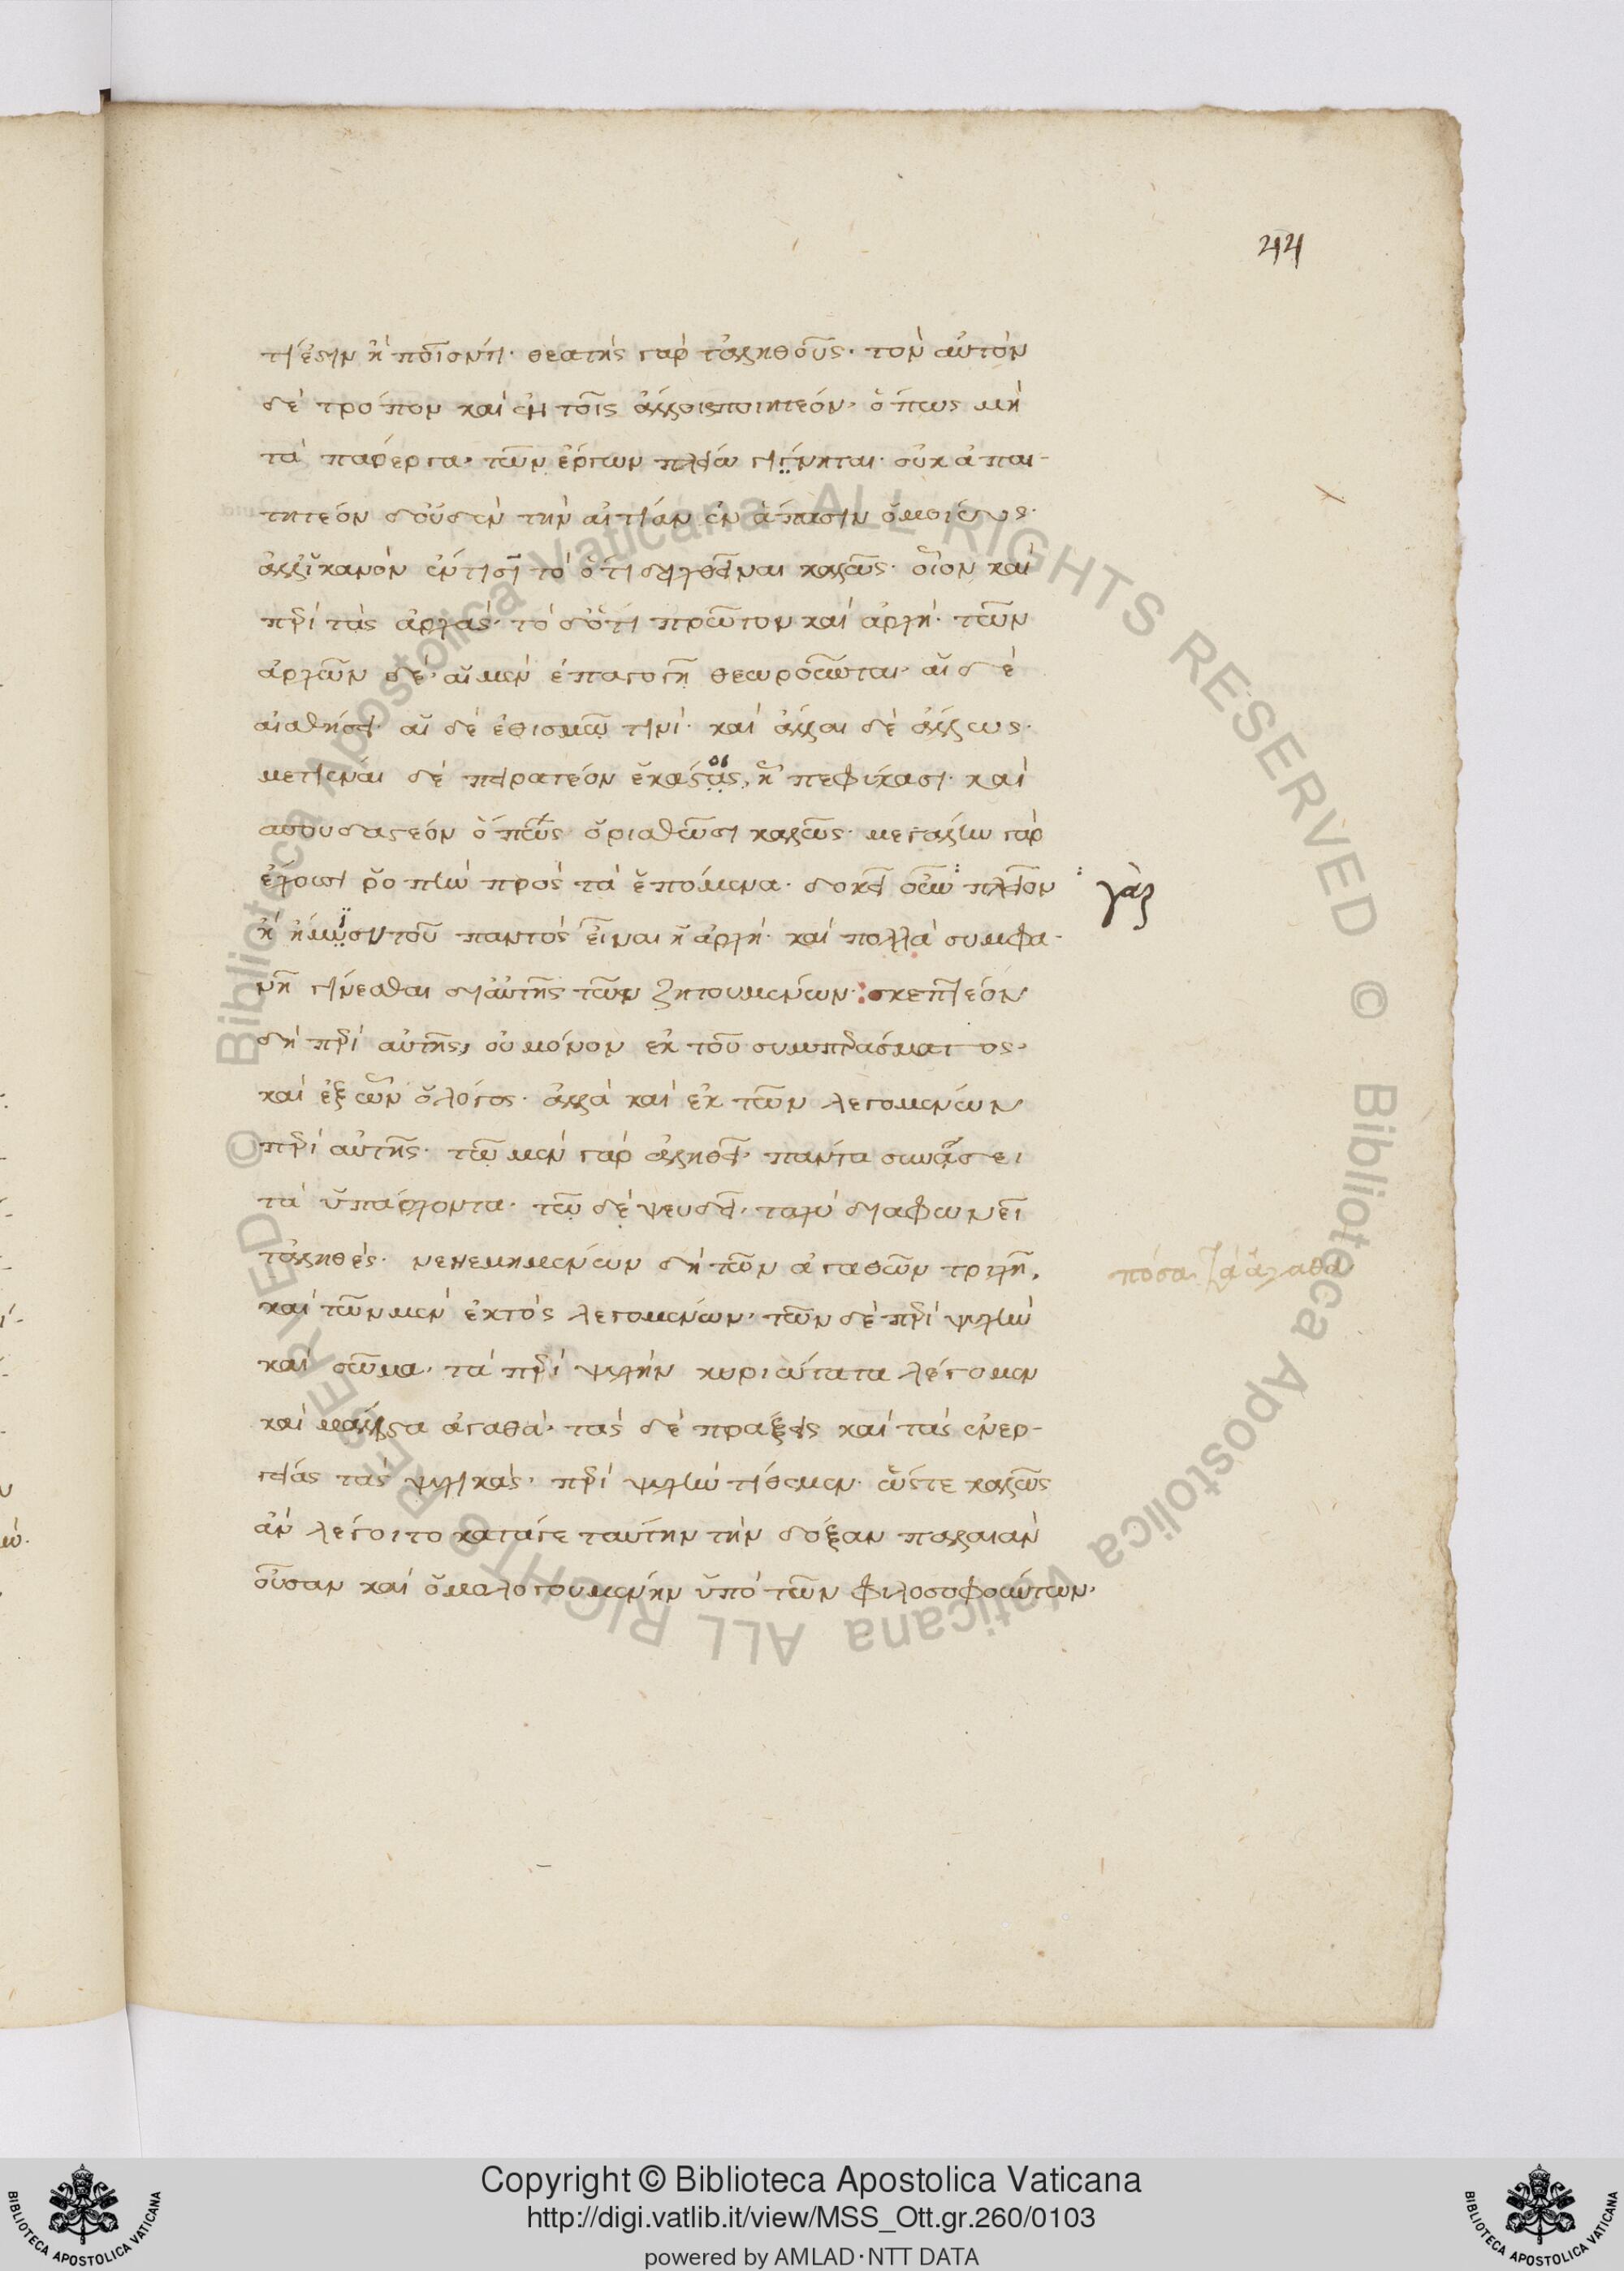 44
τί ἐστιν ἢ ποῖόν τι· θεατὴς γὰρ τἀληθοῦς· τὸν αὐτὸν
δὲ τρόπον καὶ ἐν τοῖς ἄλλοις ποιητέον· ὅπως μὴ
τὰ πάρεργα· τῶν ἔργων πλείω γίγνηται· οὐκ ἀπαι-
τητέον δ' οὐδὲν τὴν αἰτίαν ἐν ἅπασιν ὁμοίως·
ἀλλ' ἱκανὸν ἔν τισι τὸ ὅτι δειχθῆναι καλῶς· οἷον καὶ
περὶ τὰς ἀρχάς· τὸ δ' ὅτι πρῶτον καὶ ἀρχή· τῶν
ἀρχῶν δὲ· αἱ μὲν ἐπαγογῆ θεωροῦνται· αἱ δὲ
αἰσθήσει· αἱ δὲ ἐθισμῷ τινί· καὶ ἄλλαι δὲ ἄλλως·
μετιέναι δὲ πειρατέον ἑκάστας, οι ἧ πεφύκασι· καὶ
σπουδαστέον ὅπως ὁρισθῶσι καλῶς· μεγάλην γὰρ
ἔχουσι ῥοπὴν πρὸς τὰ ἑπόμενα· δοκεῖ οὖν πλεῖον
γὰρ
ἢ ἥμισυ τοῦ παντὸς εἶναι ἡ ἀρχή· καὶ πολλὰ συμφα-
νῆ γίνεσθαι δι' αὐτῆς τῶν ζητουμένων: σκεπτέον
δὴ περὶ αὐτῆς, οὐ μόνον ἐκ τοῦ συμπεράσματος·
καὶ ἐξ ὧν ὁ λόγος· ἀλλὰ καὶ ἐκ τῶν λεγομένων
περὶ αὐτῆς· τῷ μὲν γὰρ ἀληθεῖ· πάντα συνᾴδει
τὰ ὑπάρχοντα· τῷ δὲ ψευδεῖ· ταχὺ διαφωνεῖ
τἀληθές· νενεμημένων δὴ τῶν ἀγαθῶν τριχῆ,
πόσα τὰ ἀγαθά
καὶ τῶν μὲν ἐκτὸς λεγομένων· τῶν δὲ περὶ ψυχὴν
καὶ σῶμα· τὰ περὶ ψυχὴν κυριώτατα λέγομεν
καὶ μάλιστα ἀγαθά· τὰς δὲ πράξεις καὶ τὰς ἐνερ-
γείας τὰς ψυχικὰς· περὶ ψυχὴν τίθεμεν· ὥστε καλῶς
ἂν λέγοιτο κατάγε ταύτην τὴν δόξαν παλαιὰν
οὖσαν καὶ ὁμολογουμένην ὑπὸ τῶν φιλοσοφούντων·
© Biblioteca Apostolica Vaticana ALL RIGHTS RESERVED © Biblioteca Apostolica Vaticana ALL RIGHTS RESERVED
Copyright © Biblioteca Apostolica Vaticana
http://digi.vatlib.it/view/MSS_Ott.gr.260/0103
powered by AMLAD·NTT DATA
BIBLIOTECA APOSTOLICA VATICANA
BIBLIOTECA APOSTOLICA VATICANA